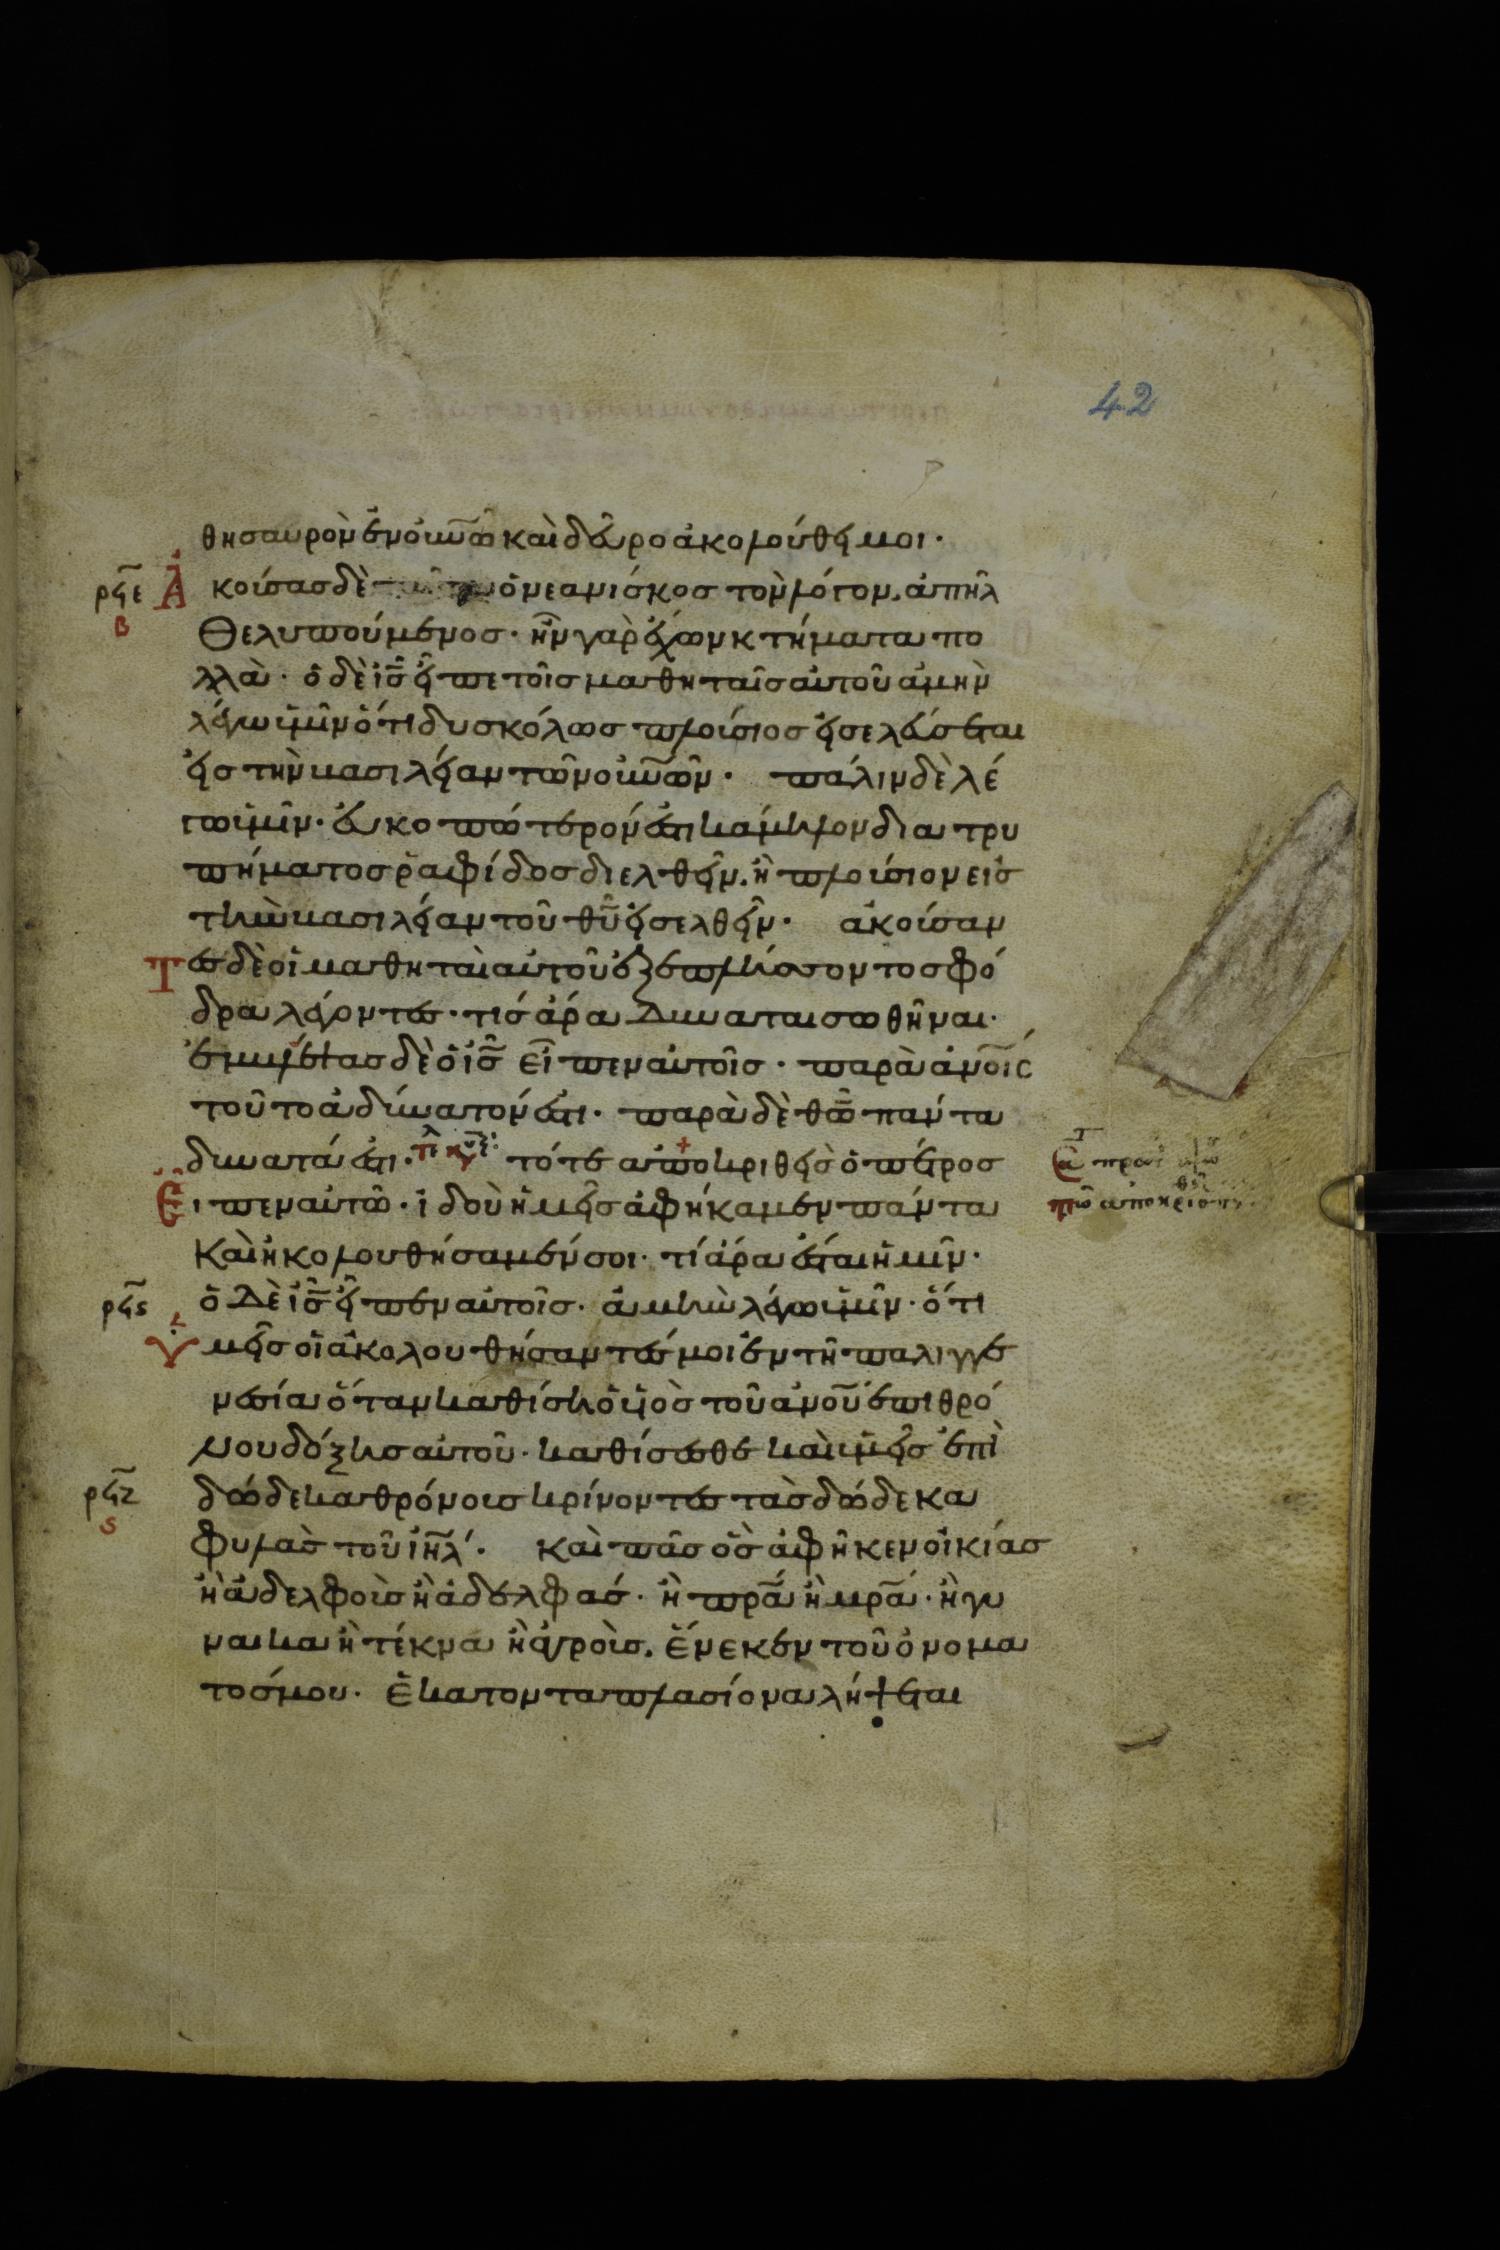 42
θησαυρὸν ἐν οὐνῶ καὶ δεῦρο ἀκολούθει μοι·
ρϟε Ἀκούσας δὲ ὁ νεανίσκος τὸν λόγον. ἀπῆλ
β θε λυπούμενος· ἦν γὰρ ἔχων κτήματα πο
λλὰ· ὁ δὲ ἰς εἶπε τοῖς μαθηταῖς αὐτοῦ ἀμὴν
λέγω ὑμῖν ὅτι δυσκόλως πλούσιος εἰσελεύσεται
εἰς τὴν βασιλείαν τῶν οὐνῶν· πάλιν δὲ λέ
γω ὑμῖν· εὐκοπώτερόν ἐστι κάμηλον διὰ τρυ
πήματος ῥαφίδος διελθεῖν. ἢ πλούσιον εἰς
τὴν βασιλείαν τοῦ θῦ εἰσελθεῖν· ἀκούσαν
Τες δὲ οἱ μαθηταὶ αὐτοῦ ἐξεπλήσσοντο σφό
δρα λέγοντες· τίς ἄρα δύναται σωθῆναι·
ἐμβλέψας δὲ ὁ ἰς εἶπεν αὐτοῖς· παρὰ ἀνοις
τοῦτο ἀδύνατόν ἐστι· παρὰ δὲ θῶ πάντα
δυνατά ἐστι· τότε ἀποκριθεὶς ὁ πέτρος
Εἶπεν αὐτῶ· ἰδοὺ ἡμεῖς ἀφήκαμεν πάντα
καὶ ἠκολουθήσαμέν σοι· τί ἄρα ἔσται ἡμῖν·
ρϟς ὁ δὲ ἰς εἶπεν αὐτοῖς· ἀμὴν λέγω ὑμῖν· ὅτι
Ὑμεῖς οἱ ἀκολουθήσαντές μοι ἐν τῆ παλιγγε
νεσία ὅταν καθίση ὁ υἱὸς τοῦ ἀνου ἐπι θρό
νου δόξης αὐτοῦ· καθίσεσθε καὶ ὑμεῖς ἐπὶ
ρϟζ δώδεκα θρόνους κρίνοντες τὰς δώδεκα
ς φυλὰς τοῦ ἰηλ· καὶ πᾶς ὃς ἀφῆκεν οἰκίας
ἢ ἀδελφοὺς ἢ ἀδελφάς· ἢ πρα ἢ μρα· ἢ γυ
ναικα ἢ τέκνα ἢ ἀγροὺς. ἕνεκεν τοῦ ὀνόμα
τός μου· ἑκατονταπλασίονα λήψεται